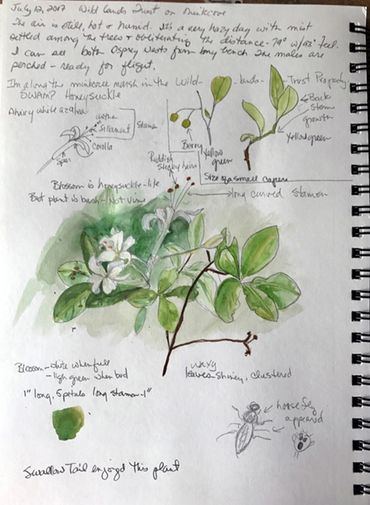 July 12, 2017 Wild Lands Trust on
The air is still hot & humid. It's a very hazy day with mist
settled among the trees & obliterating the distance - 79° w/ 93° feel.
I can see both Osprey Nests from my bench. The males are
perched - ready for flight.
I'm along the marsh in the Wild-lands-Trust Property
Swamp? Honeysuckle
A hairy white azalea
Anther
Filament
Stamen
Corolla
Berry
Yellow green
Back stem growth
Yellow green
Size of a small caper
Reddish sticky hairs
long curved stamen
Blossom is honeysuckle-like
But plant is bush - Not vine
Blossom - white when full
- light green when bud
1" long, 5 petals long stamen - 1"
waxy
leaves - shiney, clustered
horse fly
appeared
Swallow Tail enjoyed this plant